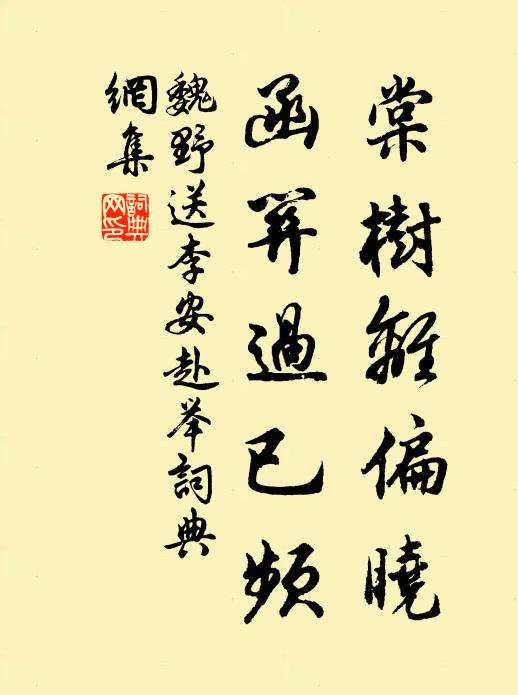 棠樹離偏曉
函关過已頻
魏野送李安赴举詞典
網集
詞典
网印